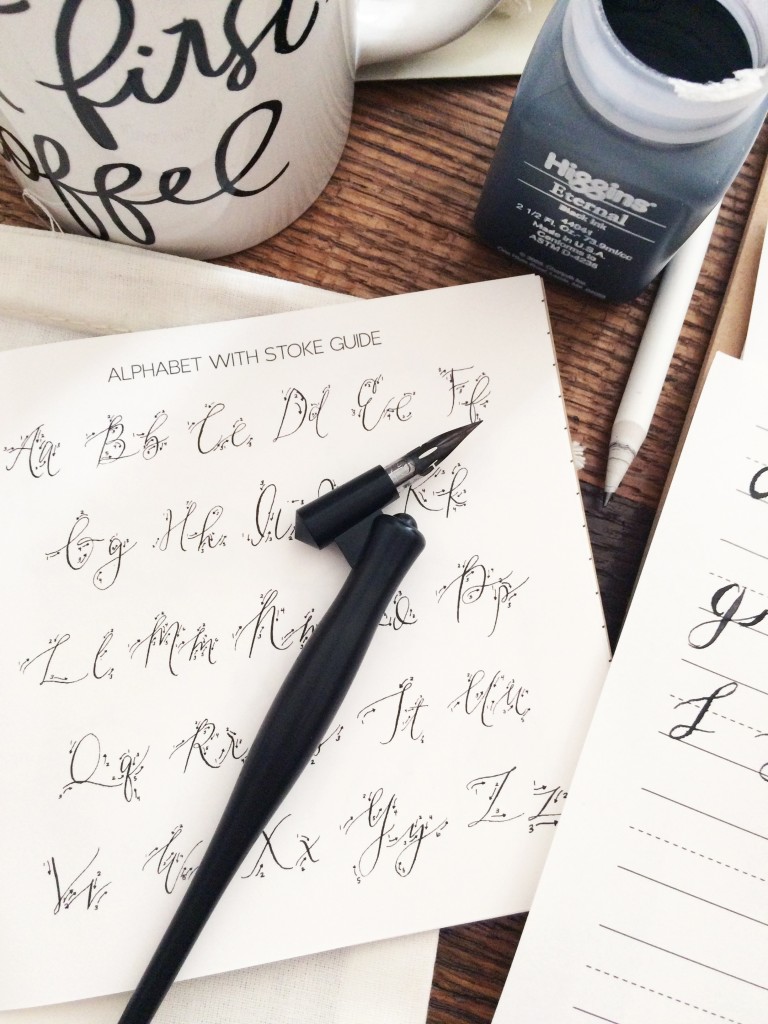 first
Higgins
Eternal
Black Ink
44041
2 1/2 FL. Oz.-73.9ml/cc
Made in U.S.A.
Conforms to
ASTM D-4236
ALPHABET WITH STOKE GUIDE
Aa Bb Cc Dd Ee Ff
Gg Hh Kk
Ll Mm Nn Pp
Qq Rr Tt Uu
Vv Xx Yy Zz